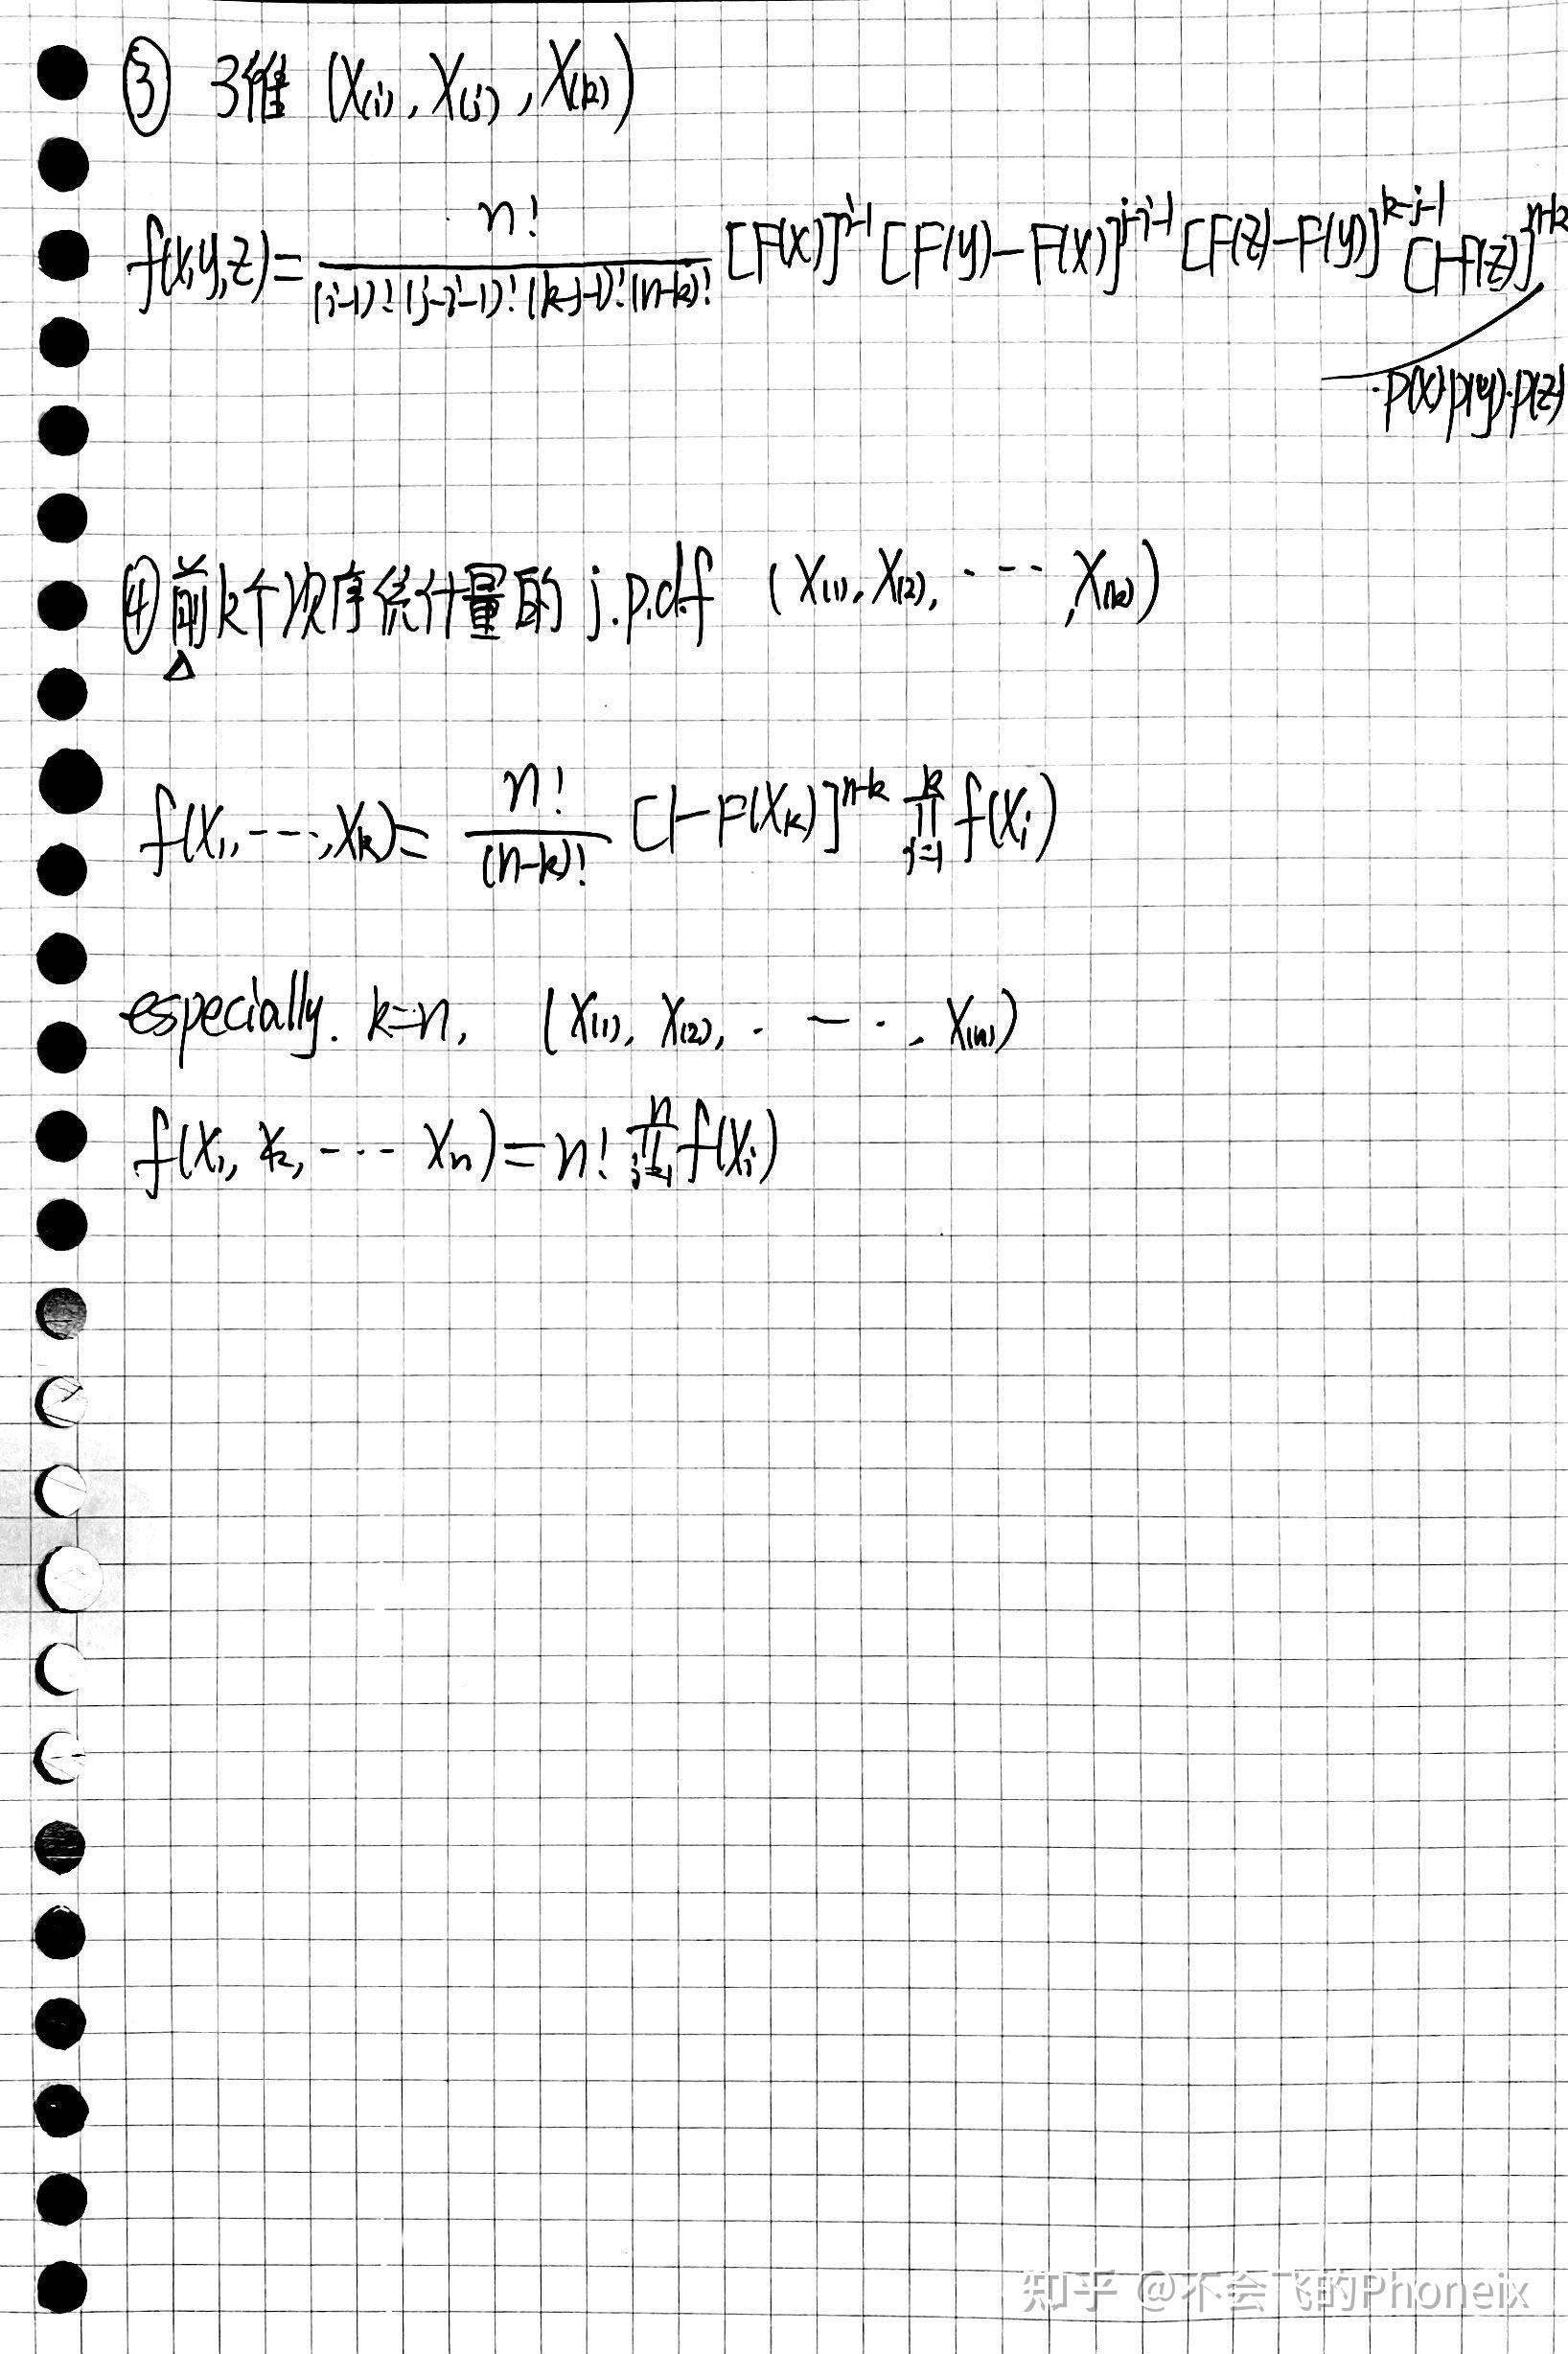 ③ 3维 (X(i), X(j), X(k))
f(x,y,z) = n! / (i-1)!(j-i-1)!(k-j-1)!(n-k)! [F(x)]^{i-1} [F(y)-F(x)]^{j-i-1} [F(z)-F(y)]^{k-j-1} [1-F(z)]^{n-k}
·p(x)p(y)·p(z)
④ 前k个次序统计量的 j.p.d.f (X(1), X(2), ···, X(k))
f(x₁, ---, xₖ) = n! / (n-k)! [1-F(xₖ)]^{n-k} ∏_{i=1}^{k} f(xᵢ)
especially. k=n, (X(1), X(2), · — ·, X(n))
f(x₁, x₂, ··· xₙ) = n! ∏_{i=1}^{n} f(xᵢ)
知乎 @不会飞的Phoneix